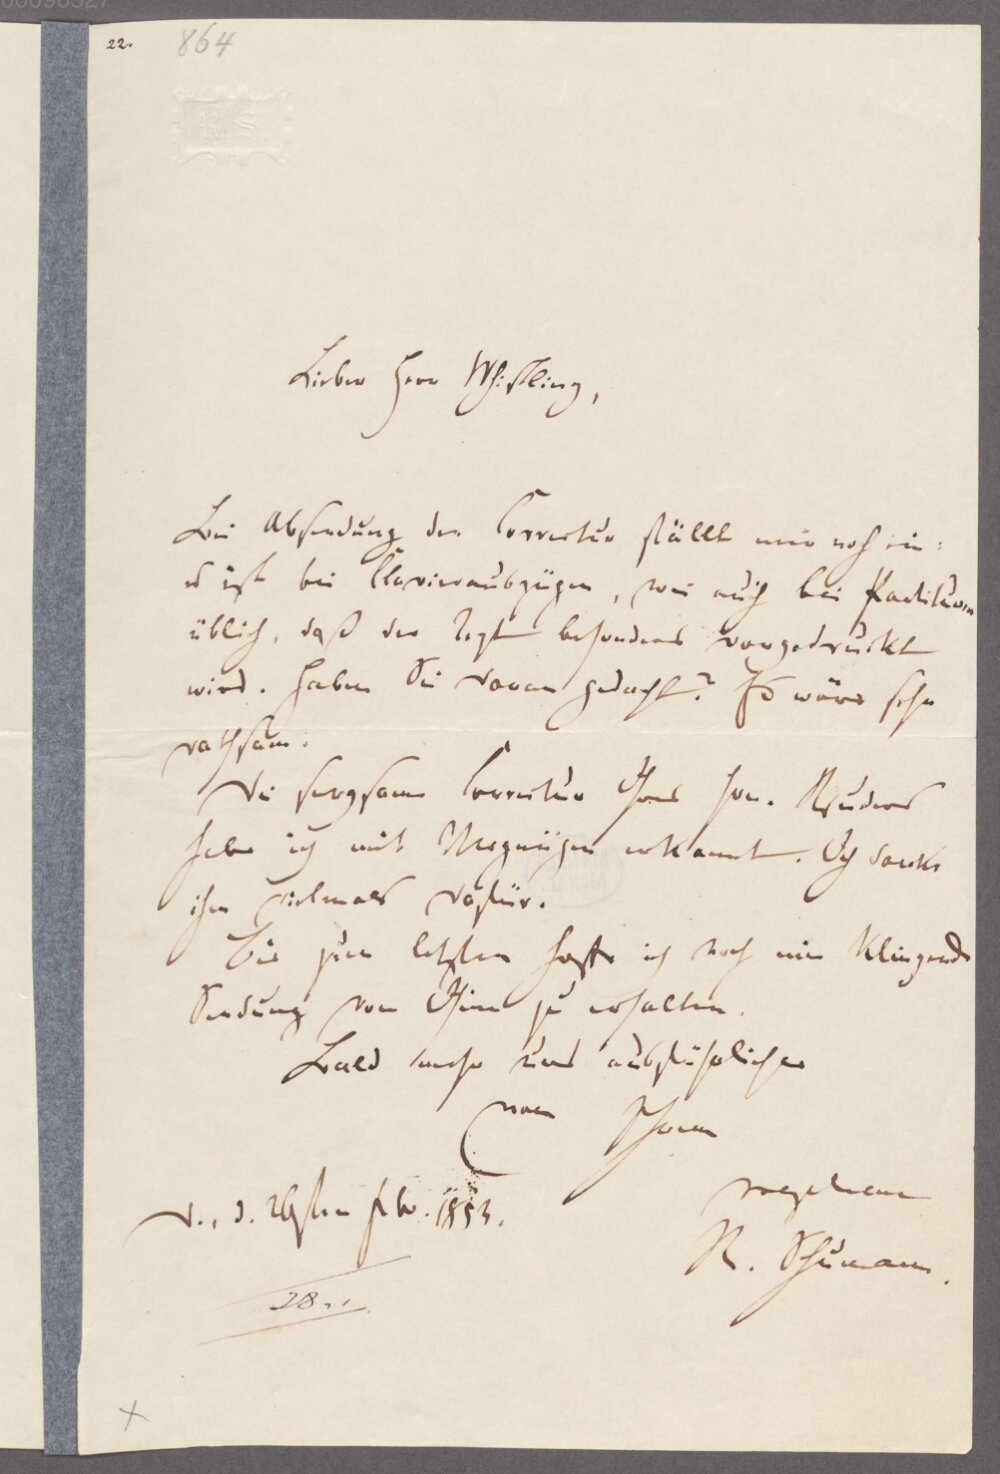 22.
864
R. S
Lieber Herr Whistling,
Bei Absendung der Correctur fällt mir noch ein:
es ist bei Clavierauszügen, wie auch bei Partituren
üblich, daß der Text besonders vorgedruckt
wird. Haben Sie daran gedacht? Es wäre sehr
rathsam.
Die sorgsame Correctur Ihres Hrn.
habe ich mit Vergnügen erkannt. Ich danke
ihm vielmals dafür.
Bis zum letzten hoffe ich noch eine klingende
Sendung von Ihnen zu erhalten.
Bald mehr und ausführlicher
von Ihrem
ergebenen
R. Schumann.
D., d. Febr. 1853.
28